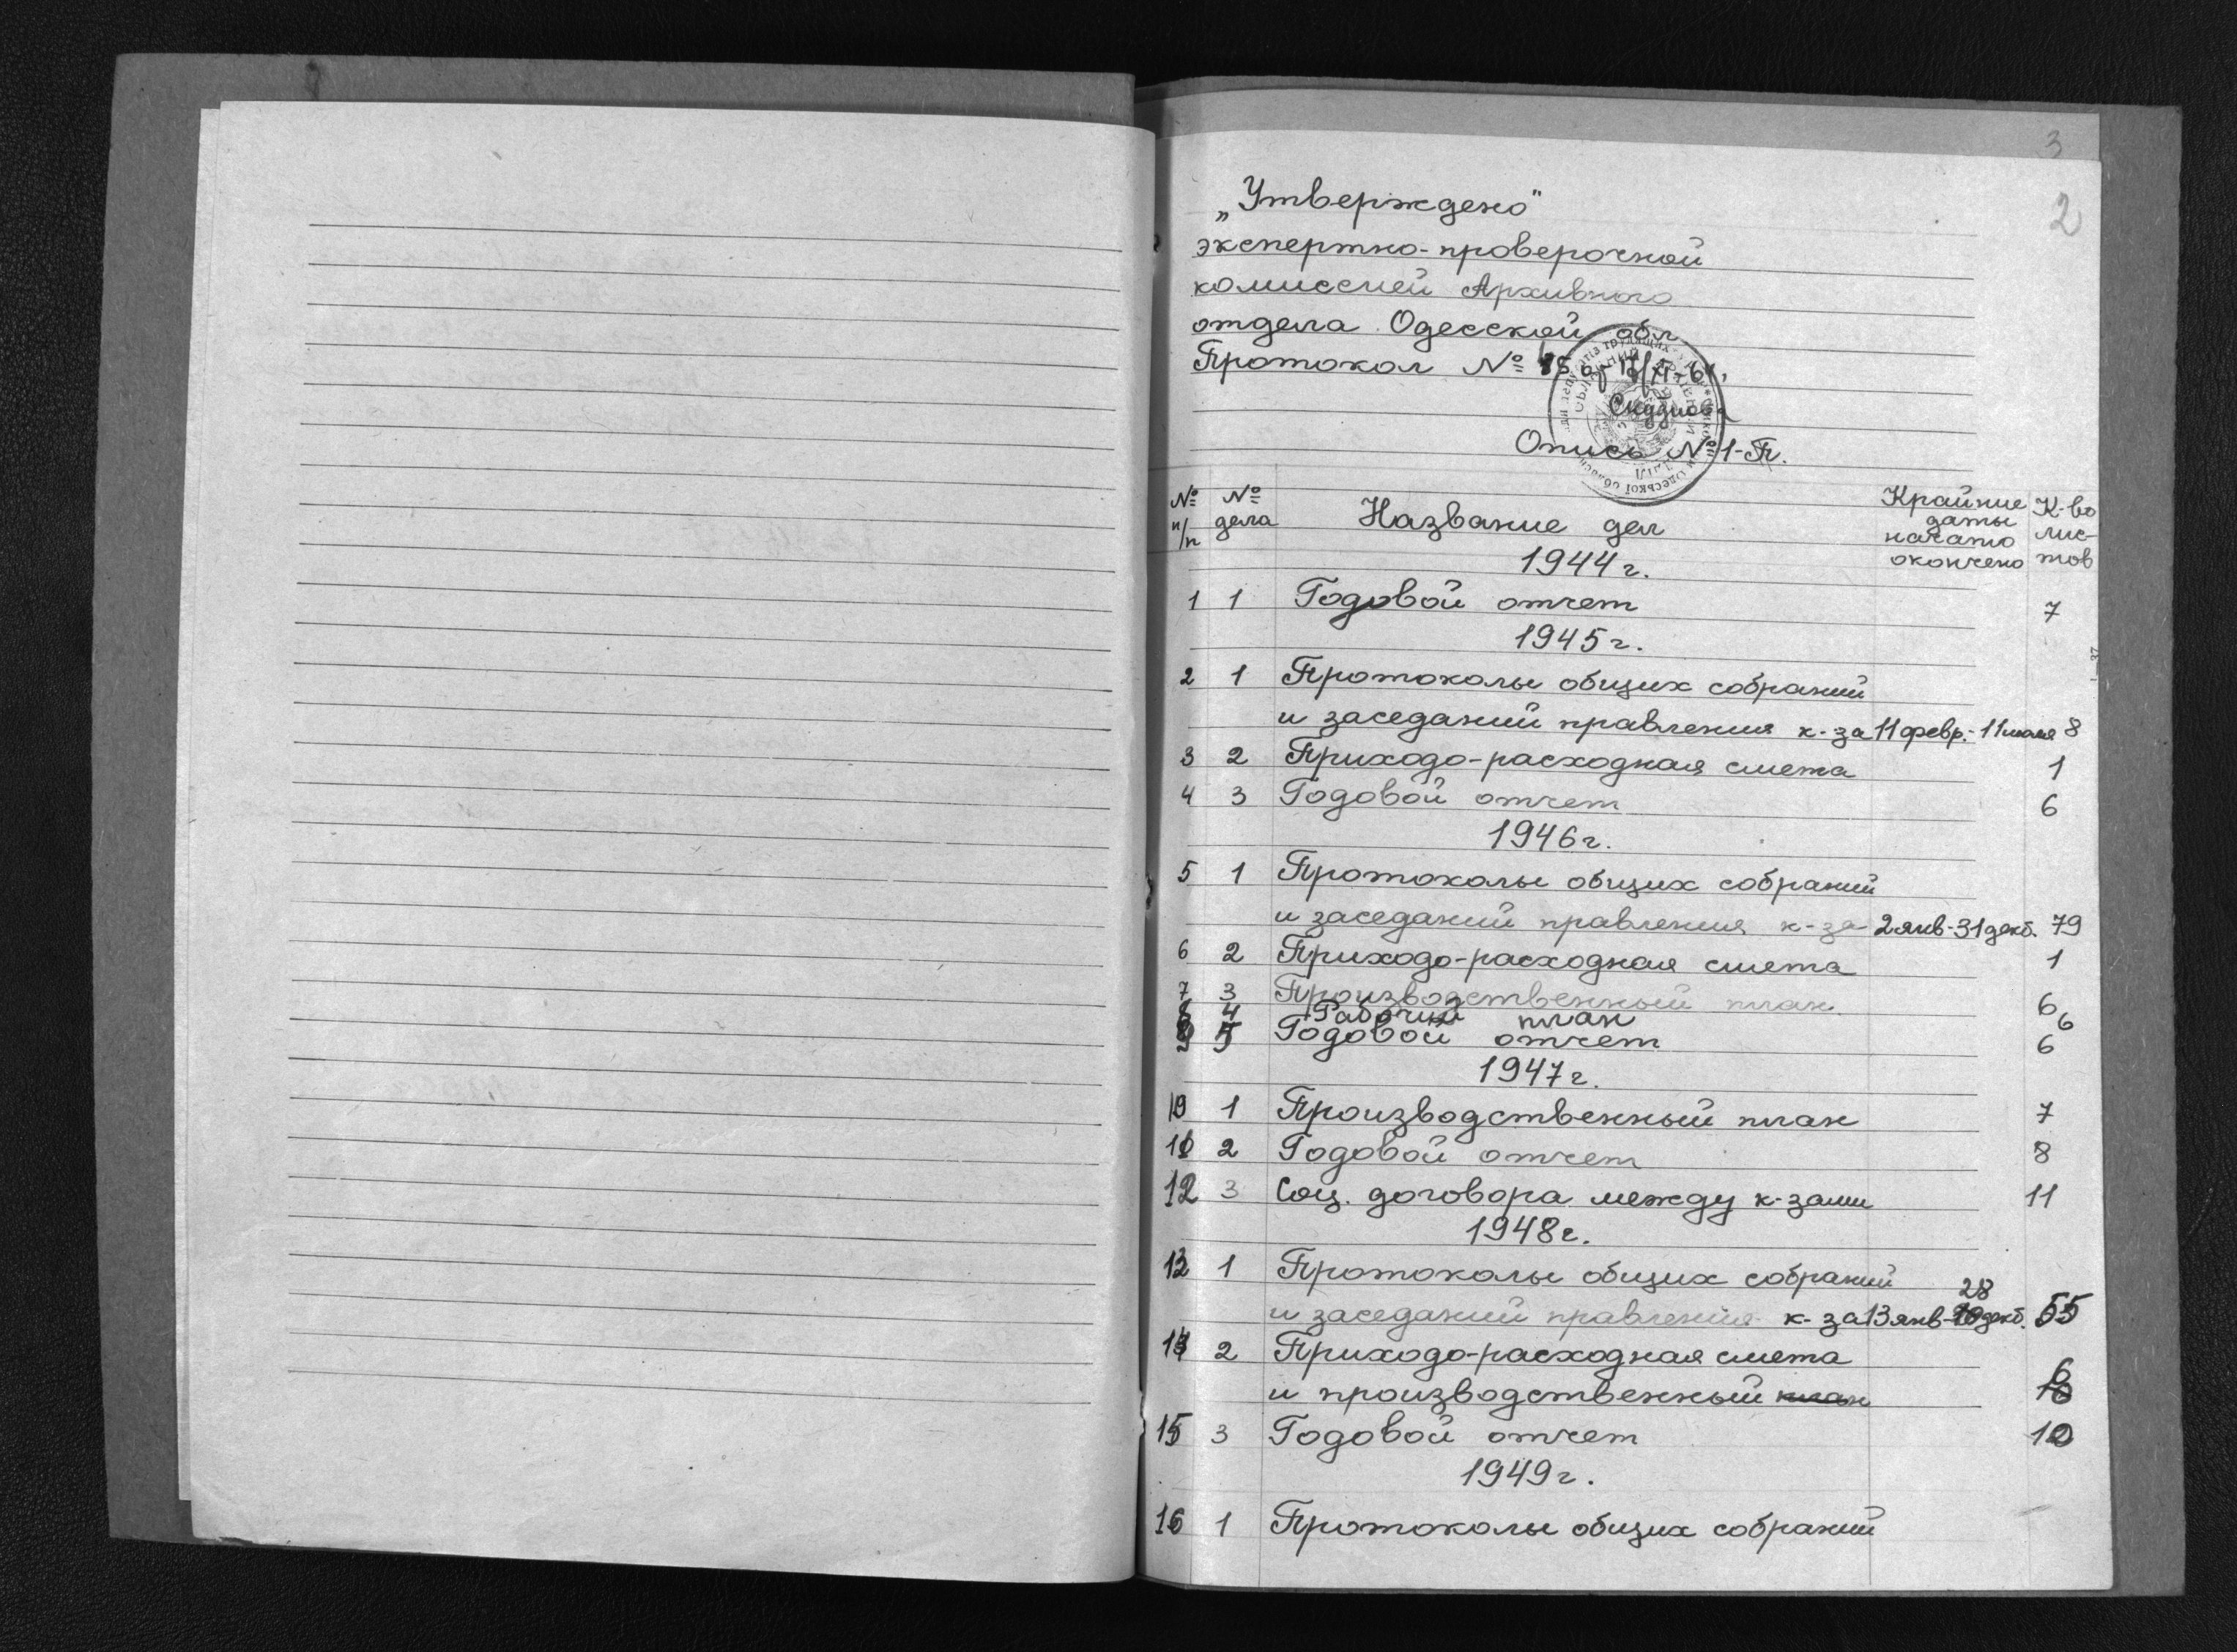 3
2
„Утверждено"
экспертно-проверочной
комиссией Архивного
отдела Одесской обл
Протокол №
Опись №1-П.
№ п/п № дела Название дел Крайние даты начато окончено К-во лис-тов
1944г.
1 1 Годовой отчет 7
1945г.
2 1 Протоколы общих собраний
и заседаний правления к-за 11 февр.- 11 июля 8
3 2 Приходо-расходная смета 1
4 3 Годовой отчет 6
1946г.
5 1 Протоколы общих собраний
и заседаний правления к-за 2 янв-31 декб. 79
6 2 Приходо-расходная смета 1
7 3 Производственный план 6
8 4 Рабочий план 6
9 5 Годовой отчет 6
1947г.
10 1 Производственный план 7
11 2 Годовой отчет 8
12 3 Соц. договора между к-зами 11
1948г.
13 1 Протоколы общих собраний
и заседаний правления к-за 13 янв-28 декб. 55
14 2 Приходо-расходная смета
и производственный план
15 3 Годовой отчет 10
1949г.
16 1 Протоколы общих собраний